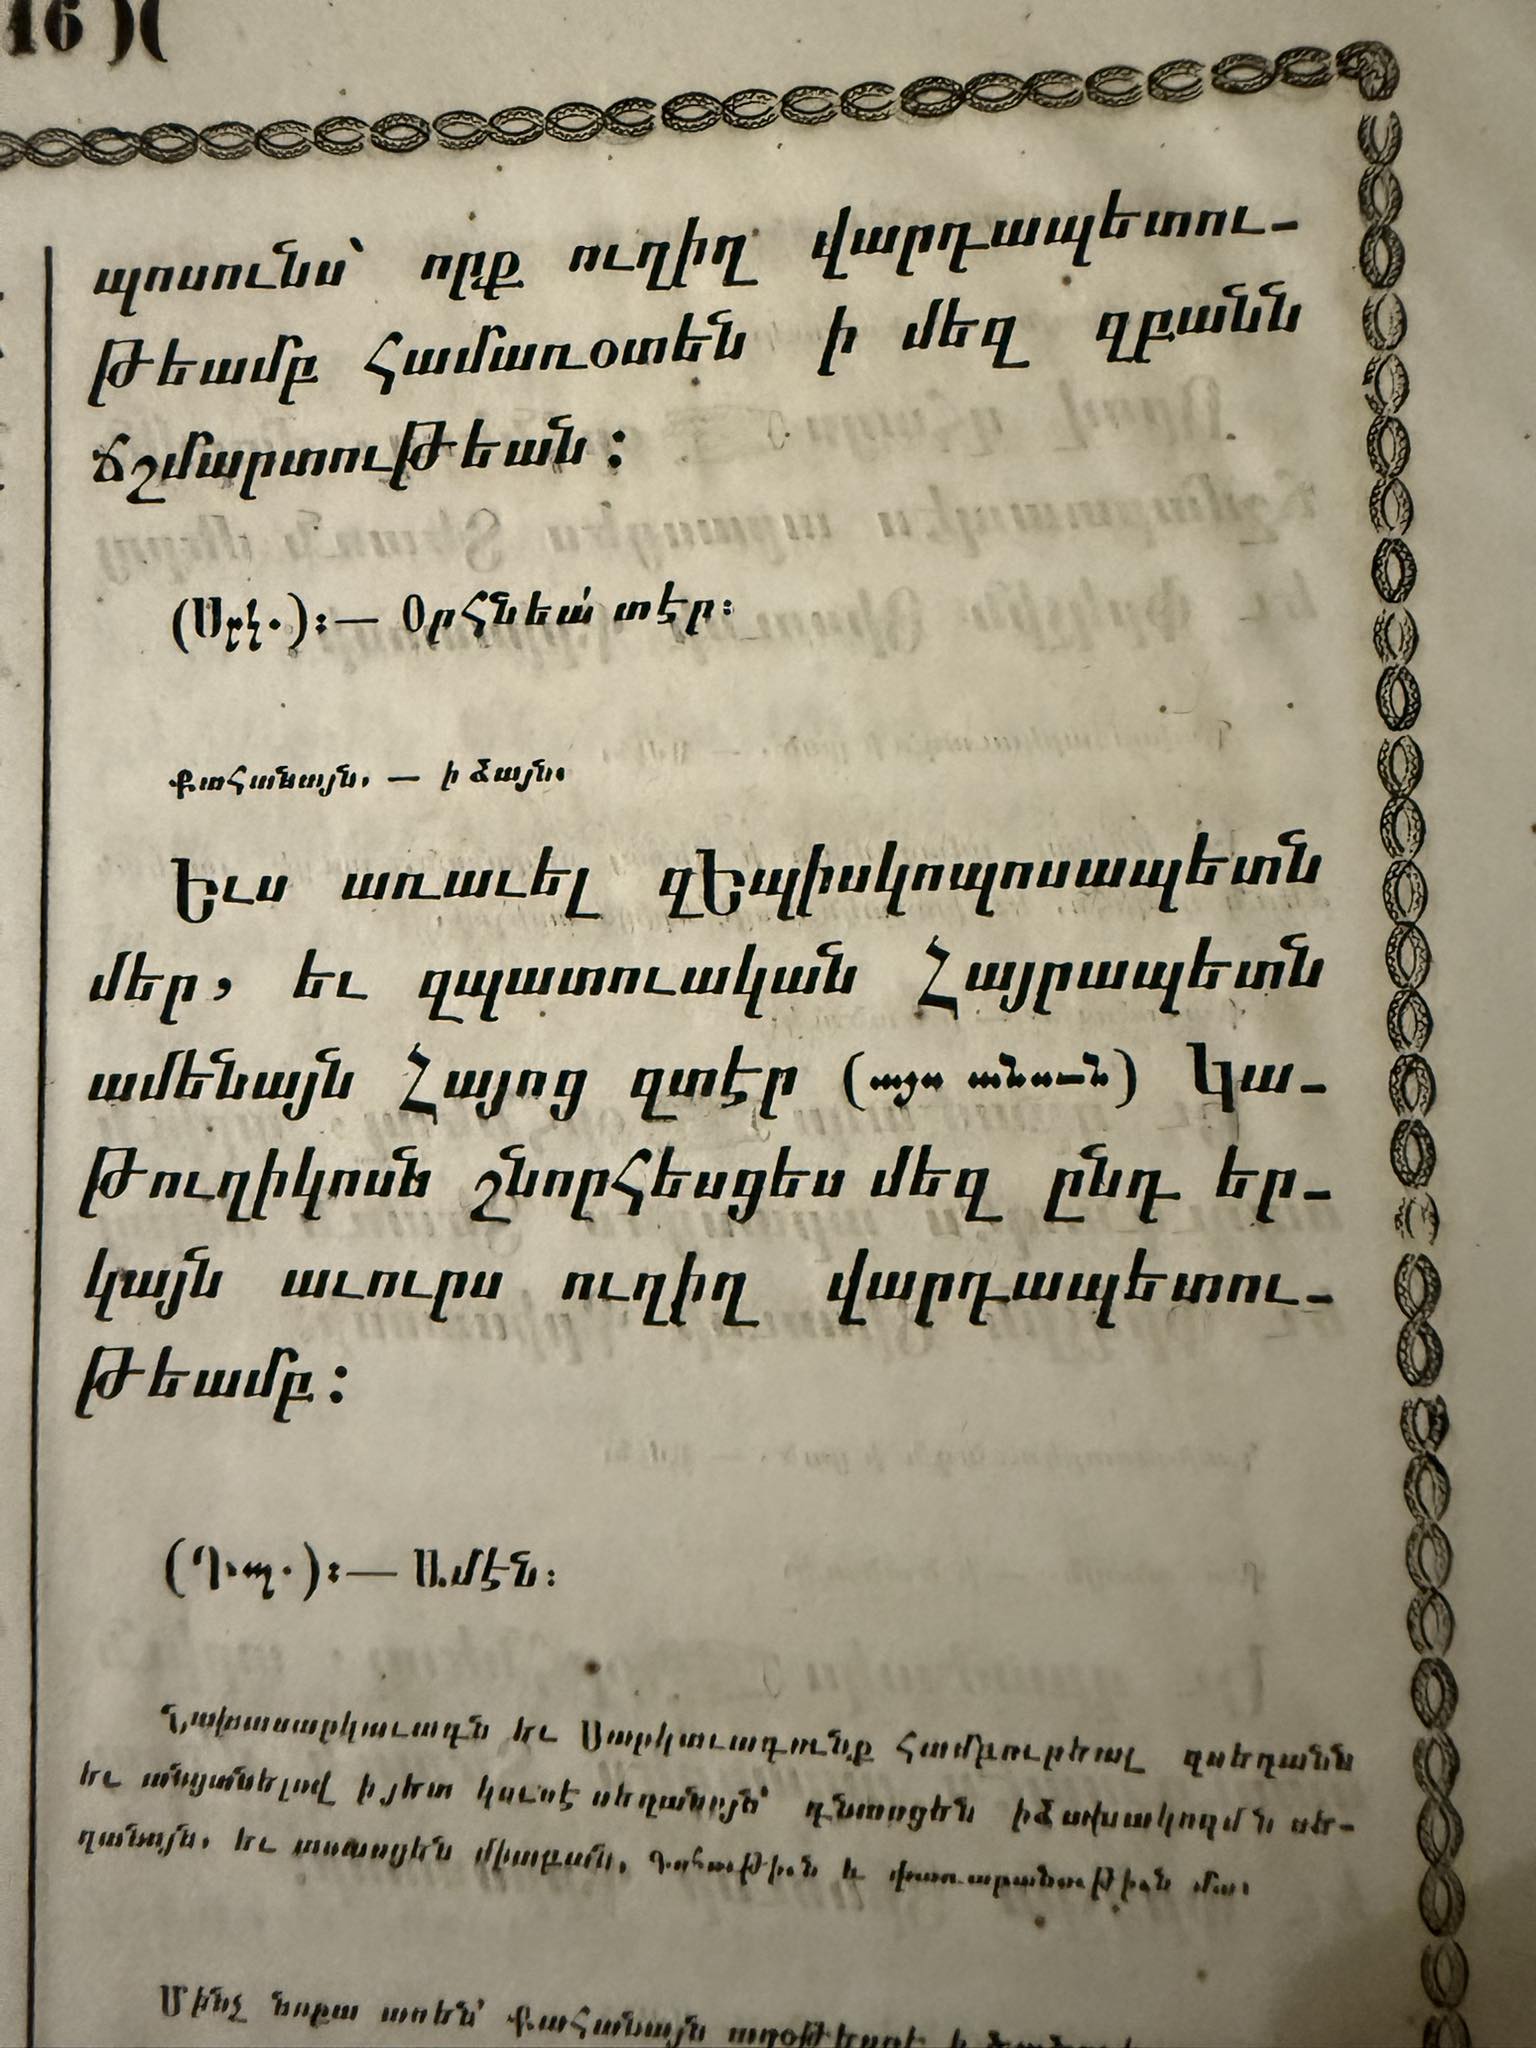 16 )(
պոսունս՝ որք ուղիղ վարդապետու-
թեամբ համառօտեն ի մեզ զբանն
ճշմարտութեան։
(Սրկ.)։— Օրհնեա՛ տէր։
Քահանայն. — ի ձայն.
Եւս առաւել զԵպիսկոպոսապետն
մեր, եւ զպատուական Հայրապետն
ամենայն Հայոց զտէր (այս անուն) Կա-
թուղիկոսն շնորհեսցես մեզ ընդ եր-
կայն աւուրս ուղիղ վարդապետու-
թեամբ։
(Դպ.)։— Ամէն։
Նախասարկաւագն եւ Սարկաւագունք համբուրեալ զսեղանն
եւ անցանելով ի յետ կուսէ սեղանոյն՝ գնասցեն ի ձախակողմն սե-
ղանոյն. եւ ասասցեն միաբան. Գոհութիւն և փառաբանութիւն մա.
Մինչ նոքա ասեն՝ Քահանայն աղօթեսցէ ի